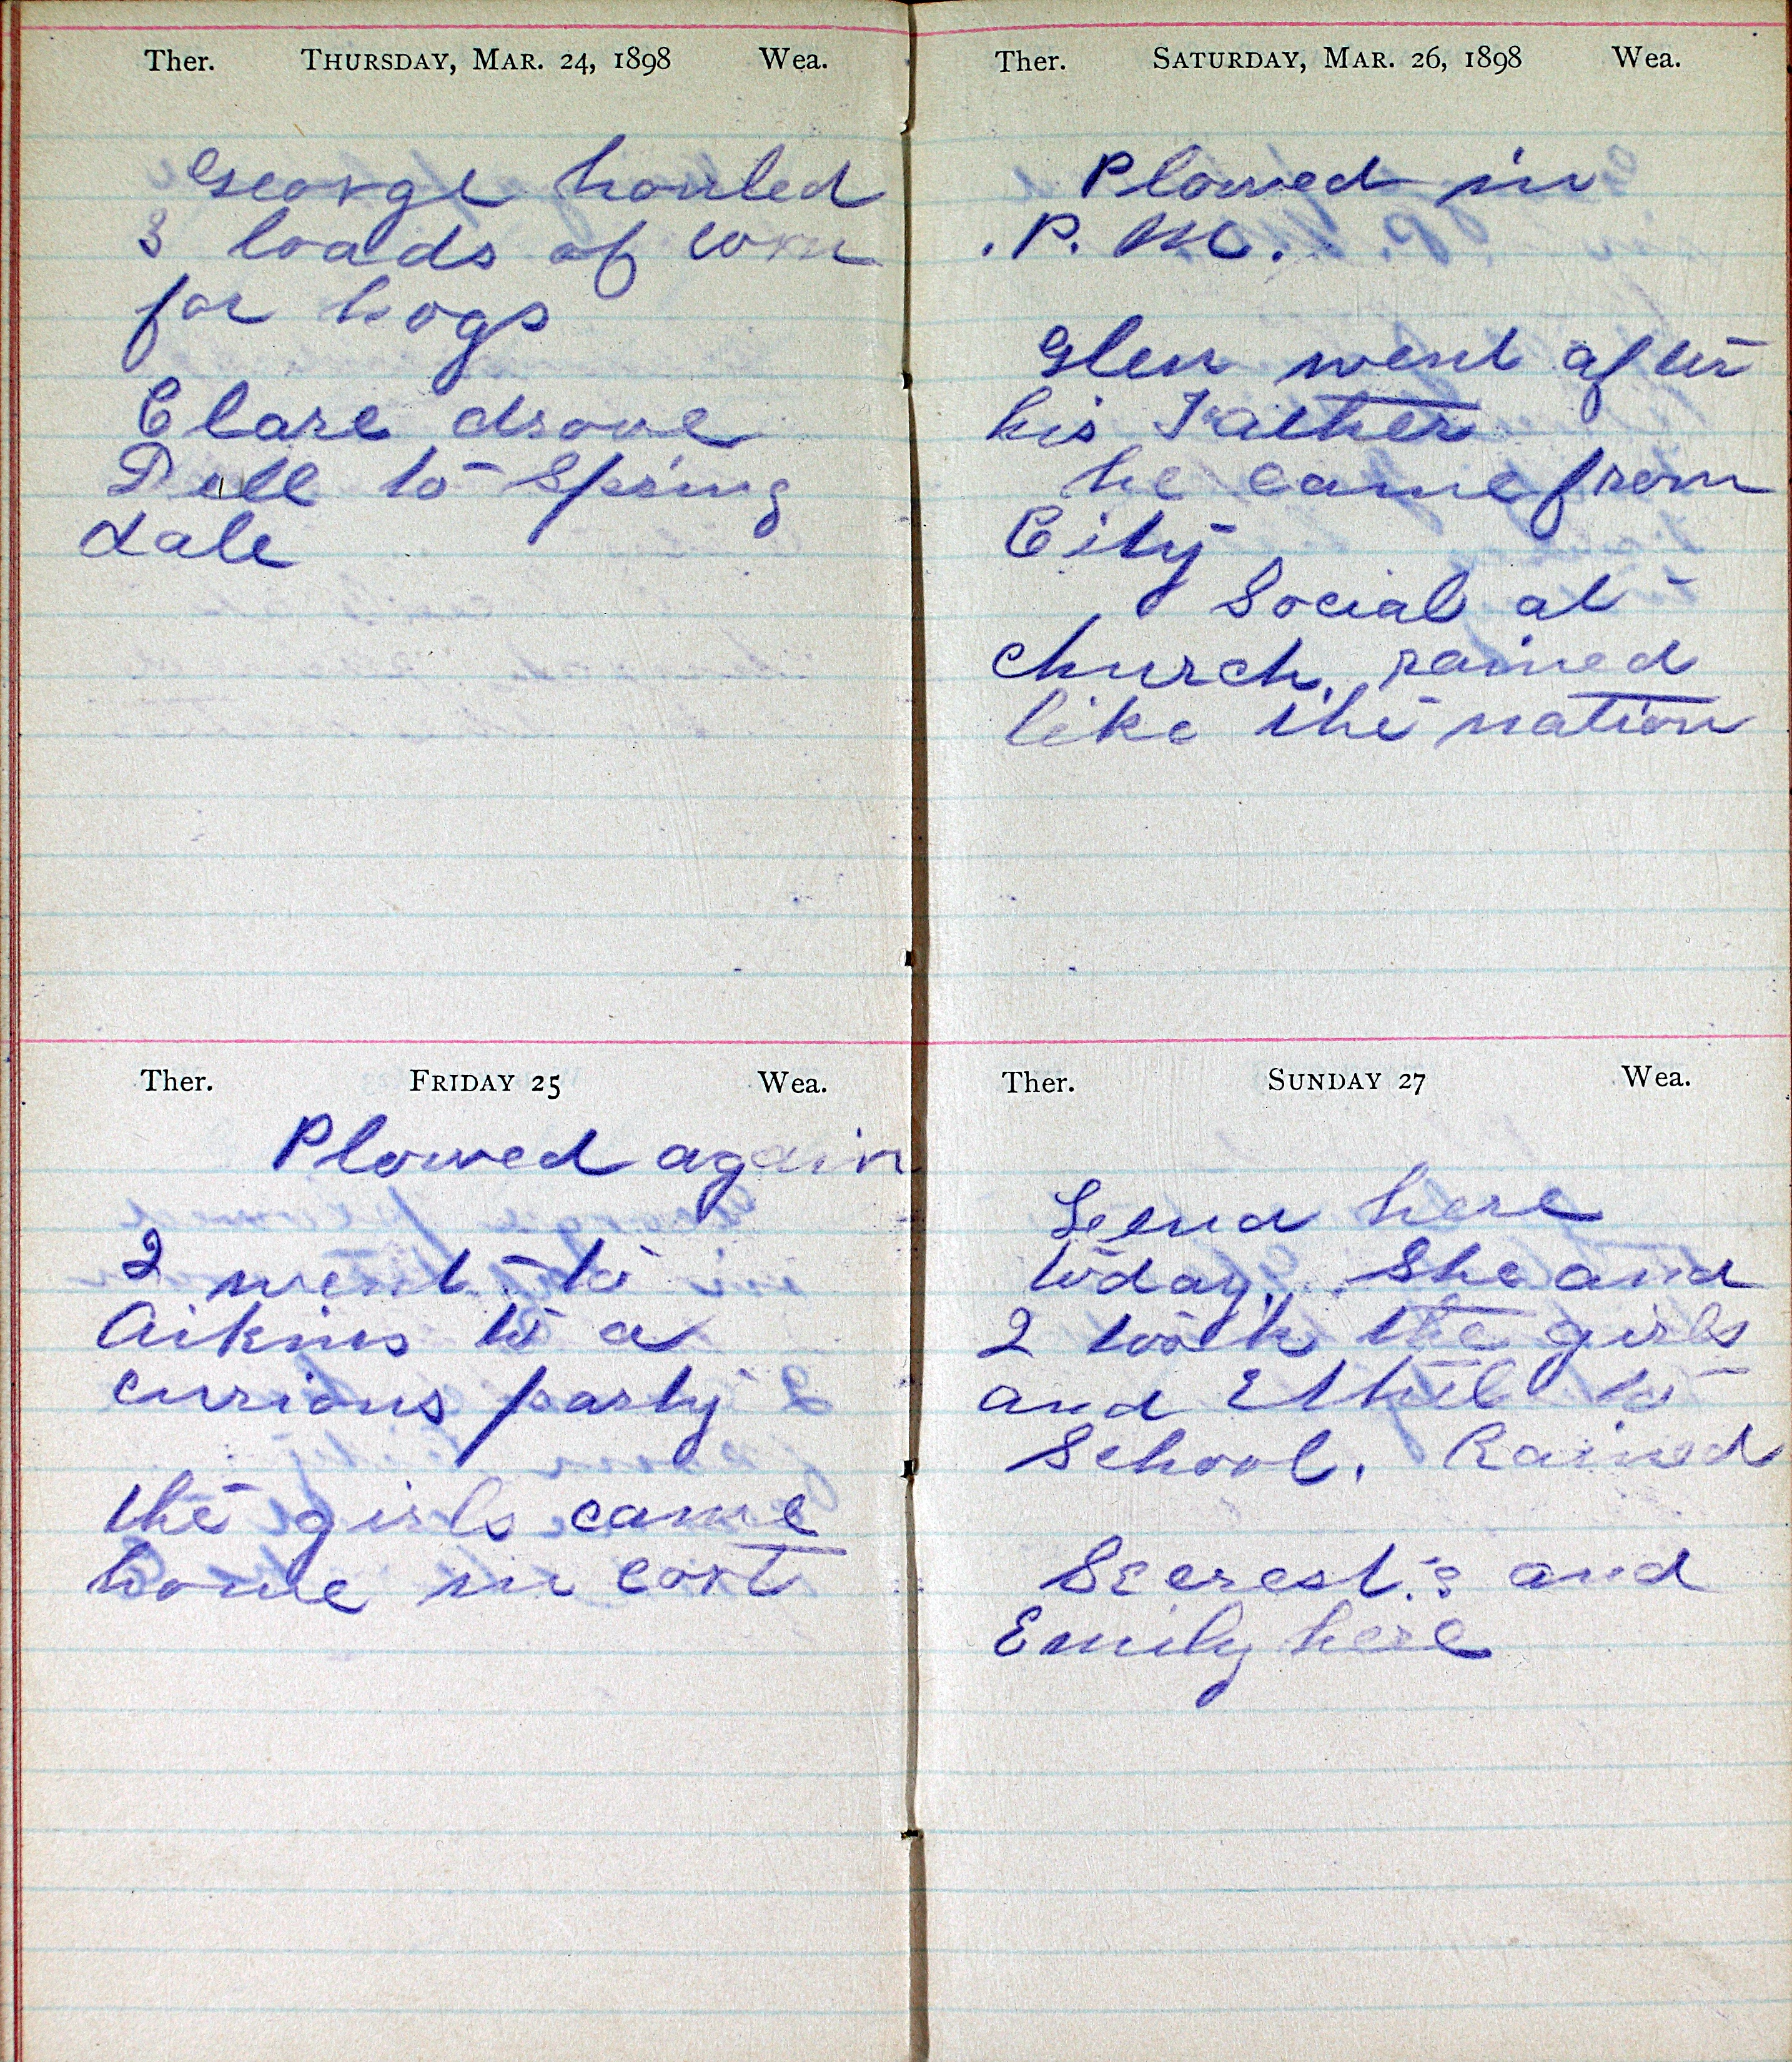 Ther. THURSDAY, MAR. 24, 1898 Wea.
George houled
3 loads of corn
for hogs
Clare drove
Dell to Spring
dale
Ther. FRIDAY 25 Wea.
Plowed again
I went to
Aikins to a
curious party
the girls came
home in cart
Ther. SATURDAY, MAR. 26, 1898 Wea.
Plowed in
. P. M.
Glen went after
his Father
he came from
City
Social at
church. rained
like the nation
Ther. SUNDAY 27 Wea.
Leena here
today. She and
I took the girls
and Ethel to
School. Rained
Secrest's and
Emily here